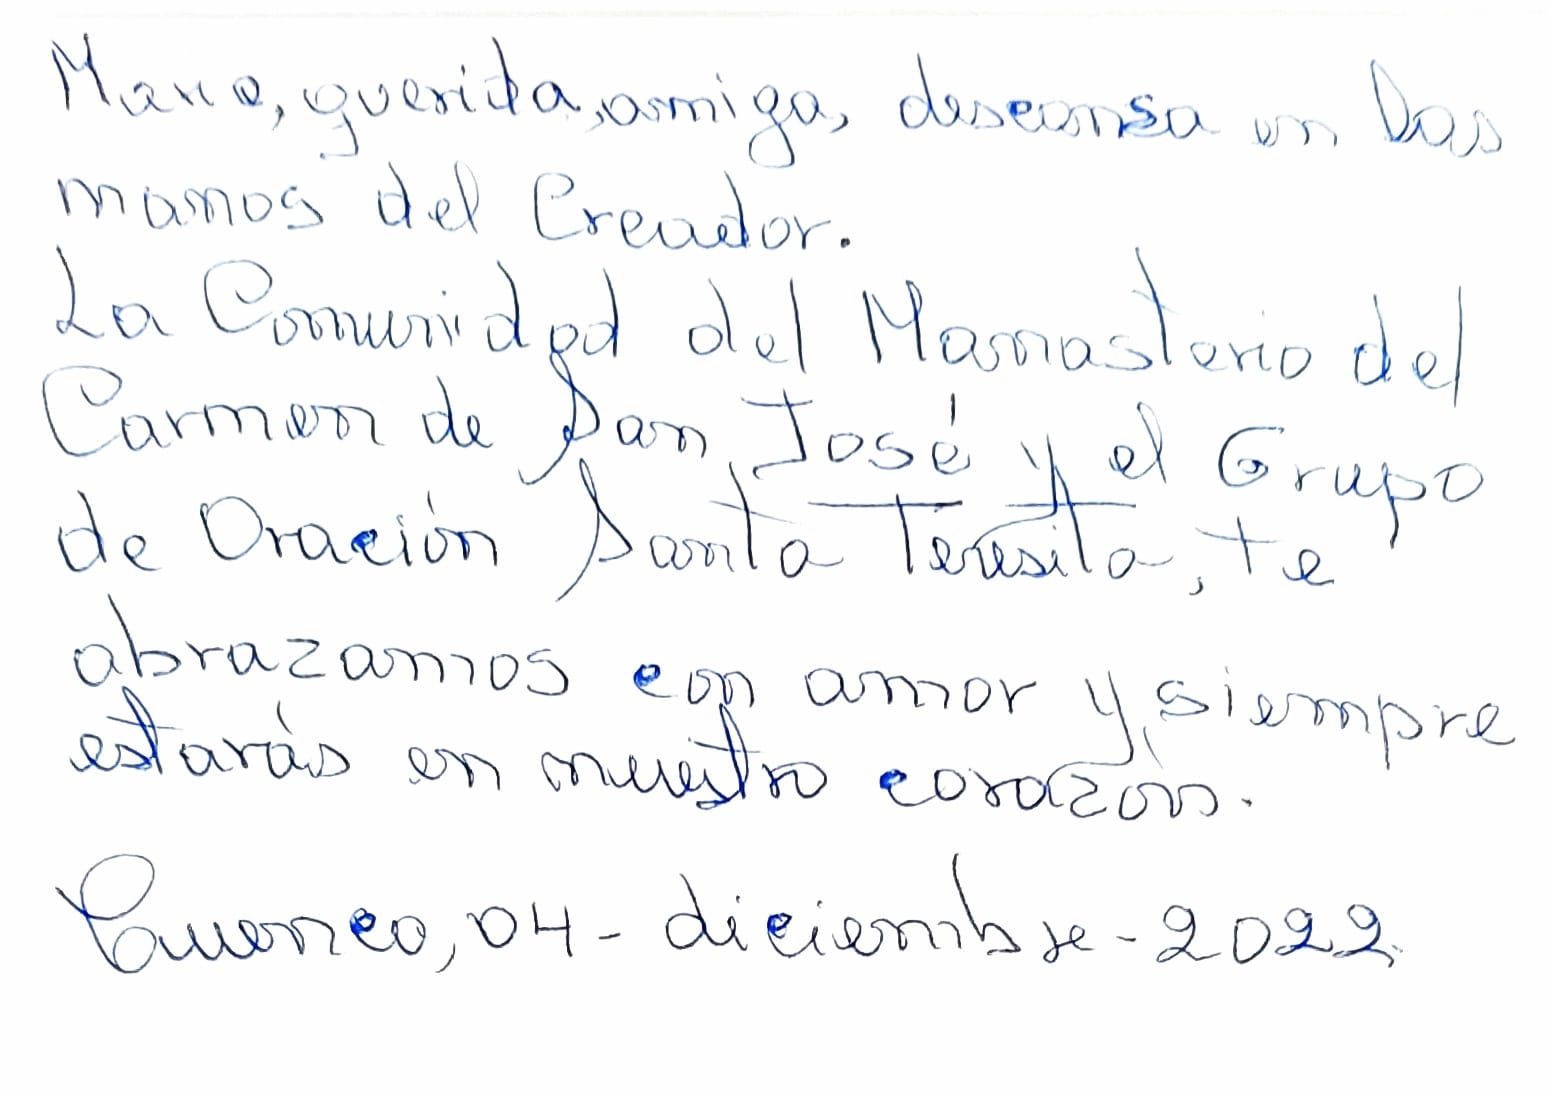 Maria, querida, amiga, descansa en las
manos del Creador.
La Comunidad del Monasterio del
Carmen de San José y el Grupo
de Oración Santa Teresita, te
abrazamos con amor y siempre
estarás en nuestro corazón.
04 - diciembre - 2022